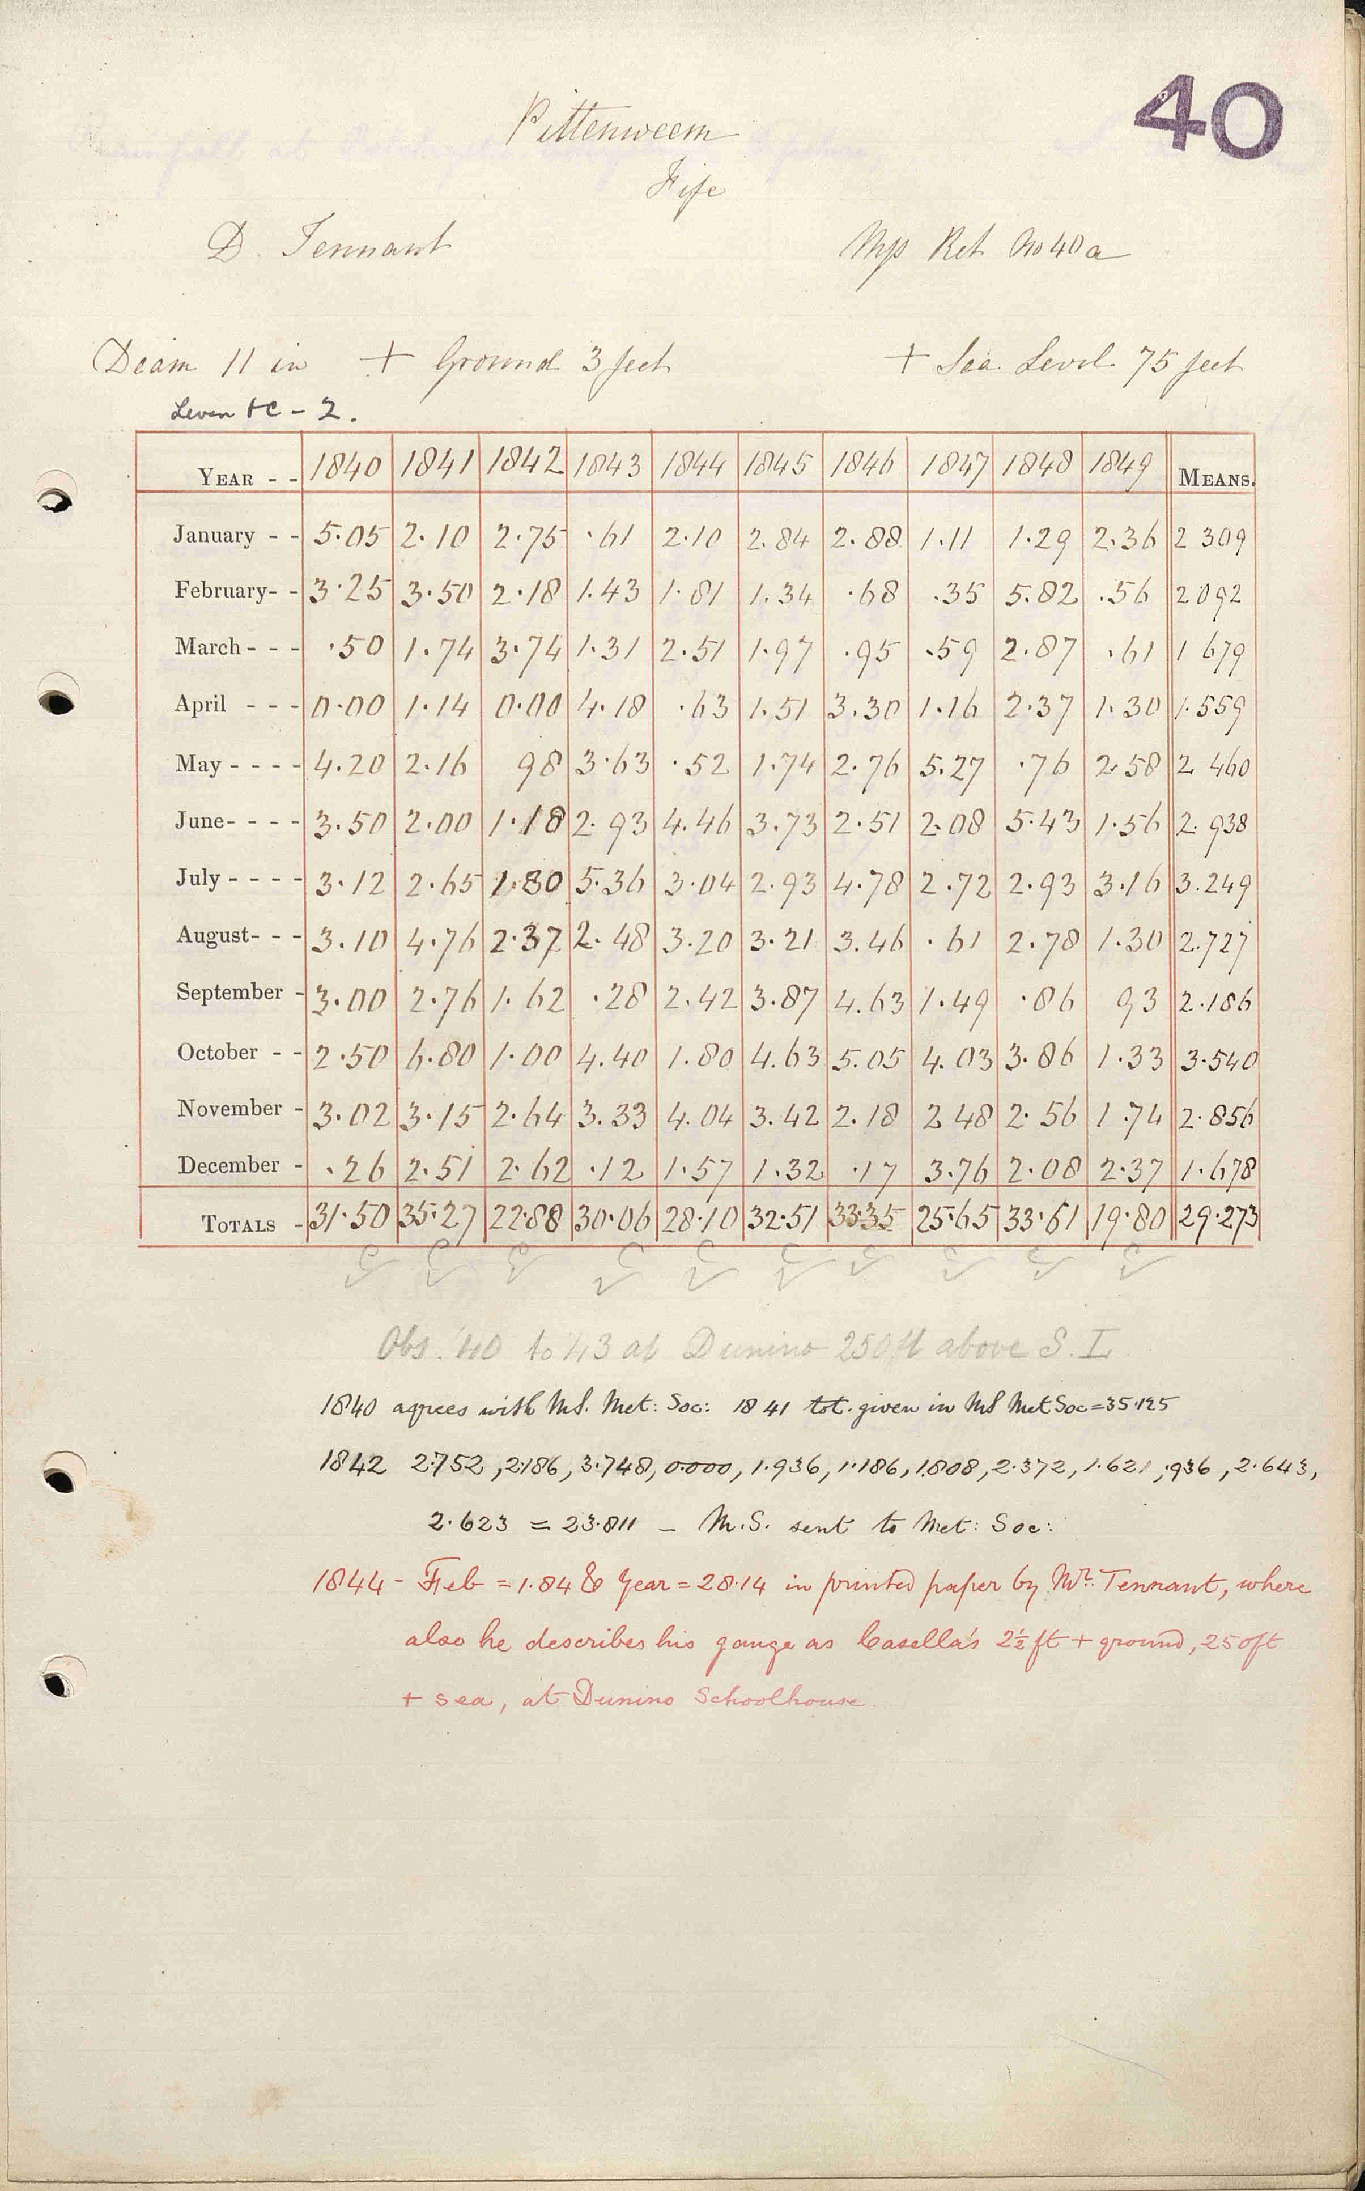 40
Pittenweem
Fife
D. Tennant Mss Ret No 40a
Diam 11 in + Ground 3 feet + Sea Level 75 feet
Leven &c - 2.
YEAR - - 1840 1841 1842 1843 1844 1845 1846 1847 1848 1849 MEANS.
January - - 5.05 2.10 2.75 .61 2.10 2.84 2.88 1.11 1.29 2.36 2 309
February- - 3.25 3.50 2.18 1.43 1.81 1.34 .68 .35 5.82 .56 2 092
March - - - .50 1.74 3.74 1.31 2.51 1.97 .95 .59 2.87 .61 1 679
April - - - 0.00 1.14 0.00 4.18 .63 1.51 3.30 1.16 2.37 1.30 1.559
May - - - - 4.20 2.16 98 3.63 .52 1.74 2.76 5.27 .76 2.58 2 460
June- - - - 3.50 2.00 1.18 2.93 4.46 3.73 2.51 2.08 5.43 1.56 2.938
July - - - - 3.12 2.65 1.80 5.36 3.04 2.93 4.78 2.72 2.93 3.16 3.249
August- - - 3.10 4.76 2.37 2.48 3.20 3.21 3.46 .61 2.78 1.30 2.727
September - 3.00 2.76 1.62 .28 2.42 3.87 4.63 1.49 .86 93 2.186
October - - 2.50 6.80 1.00 4.40 1.80 4.63 5.05 4.03 3.86 1.33 3.540
November - 3.02 3.15 2.64 3.33 4.04 3.42 2.18 2 48 2.56 1.74 2.856
December - .26 2.51 2.62 .12 1.57 1.32 .17 3.76 2.08 2.37 1.678
TOTALS - 31.50 35.27 22.88 30.06 28.10 32.51 33.35 25.65 33.61 19.80 29.273
Obs. '40 to '43 at Dunino 250 ft above S. L
1840 agrees with M.S. Met: Soc: 1841 tot. given in MS Met Soc = 35.125
1842 2.752, 2.186, 3.748, 0.000, 1.936, 1.186, 1.808, 2.372, 1.621, .936, 2.643,
2.623 = 23.811 - M.S. sent to Met: Soc:
1844 - Feb = 1.84 & Year = 28.14 in printed paper by Mr. Tennant, where
also he describes his gauge as Casella's 2½ ft + ground, 250 ft
+ sea, at Dunino Schoolhouse.